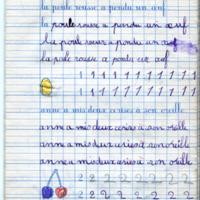 la poule rousse a pondu un œuf
la poule rousse a pondu un œuf
la poule rousse a pondu un œuf
la poule rousse a pondu un œuf
1 1 1 1 1 1 1 1 1 1 1
anne a mis deux cerises à son oreille
anne a mis deux cerises à son oreille
anne a mis deux cerises à son oreille
anne a mis deux cerises à son oreille
2 2 2 2 2 2 2 2
2 2 2 2 2 2 2 2